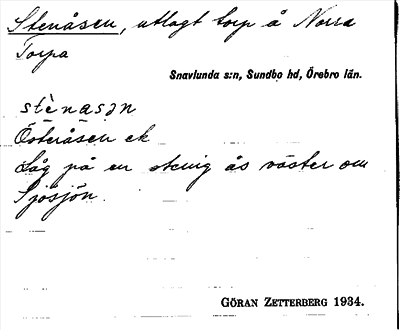 Stenåsen, utlagt torp å Norra
Torpa
Snavlunda s:n, Sundbo hd, Örebro län.
stènasən
Österåsen ek
Låg på en stenig ås väster om
Sjösjön.
GÖRAN ZETTERBERG 1934.